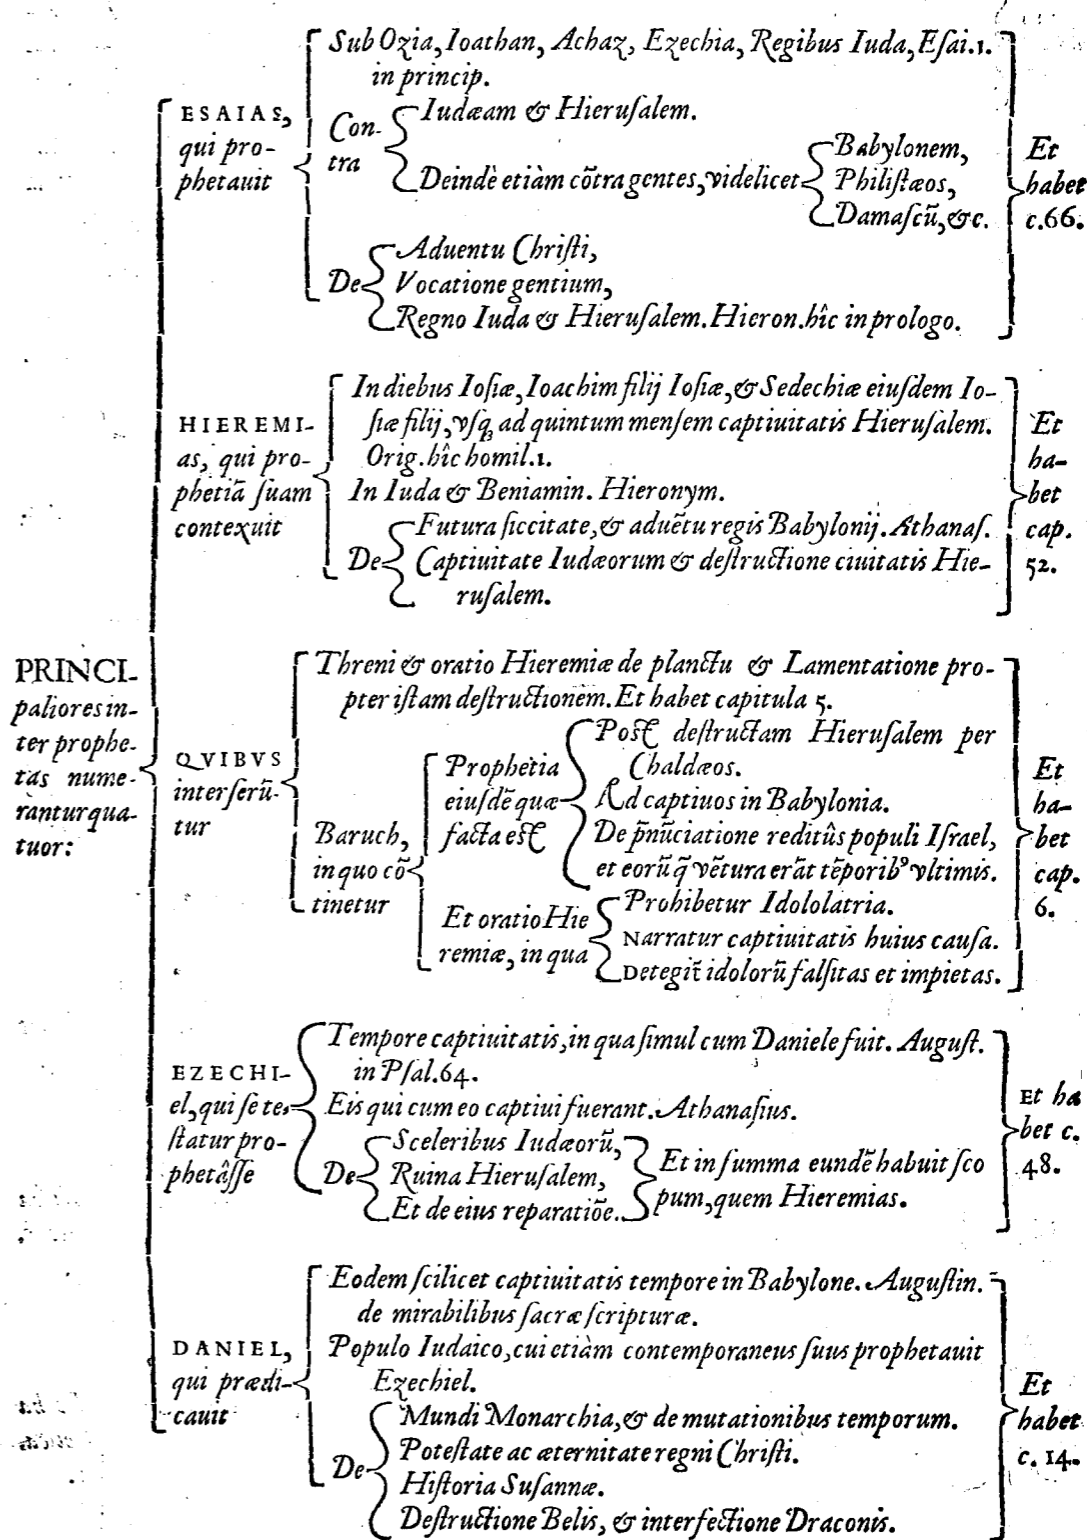 PRINCI-
paliores in-
ter prophe-
tas nume-
rantur qua-
tuor:
ESAIAS,
qui pro-
phetauit
Sub Ozia, Ioathan, Achaz, Ezechia, Regibus Iuda, Eſai.1.
in princip.
Con-
tra
Iudæam & Hieruſalem.
Deindè etiàm cõtra gentes, videlicet
Babylonem,
Philiſtæos,
Damaſcũ, &c.
De
Aduentu Chriſti,
Vocatione gentium,
Regno Iuda & Hieruſalem. Hieron. hîc in prologo.
Et
habet
c.66.
HIEREMI-
as, qui pro-
phetiã ſuam
contexuit
In diebus Ioſiæ, Ioachim filij Ioſiæ, & Sedechiæ eiuſdem Io-
ſiæ filij, vſq; ad quintum menſem captiuitatis Hieruſalem.
Orig. hîc homil.1.
In Iuda & Beniamin. Hieronym.
De
Futura ſiccitate, & aduẽtu regis Babylonij. Athanaſ.
Captiuitate Iudæorum & deſtructione ciuitatis Hie-
ruſalem.
Et
ha-
bet
cap.
52.
QVIBVS
interſerũ-
tur
Threni & oratio Hieremiæ de planctu & Lamentatione pro-
pter iſtam deſtructionem. Et habet capitula 5.
Baruch,
in quo cõ
tinetur
Prophetia
eiuſdẽ quæ
facta eſt
Poſt deſtructam Hieruſalem per
Chaldæos.
Ad captiuos in Babylonia.
De p̃nũciatione reditûs populi Iſrael,
et eorũ q̃ vẽtura erãt tẽporibꝰ vltimis.
Et oratio Hie
remiæ, in qua
Prohibetur Idololatria.
Narratur captiuitatis huius cauſa.
Detegit̃ idolorũ falſitas et impietas.
Et
ha-
bet
cap.
6.
EZECHI-
el, qui ſe te-
ſtatur pro-
phetâſſe
Tempore captiuitatis, in qua ſimul cum Daniele fuit. Auguſt.
in Pſal.64.
Eis qui cum eo captiui fuerant. Athanaſius.
De
Sceleribus Iudæorũ,
Ruina Hieruſalem,
Et de eius reparatiõe.
Et in ſumma eundẽ habuit ſco
pum, quem Hieremias.
Et ha
bet c.
48.
DANIEL,
qui prædi-
cauit
Eodem ſcilicet captiuitatis tempore in Babylone. Auguſtin.
de mirabilibus ſacræ ſcripturæ.
Populo Iudaico, cui etiàm contemporaneus ſuus prophetauit
Ezechiel.
De
Mundi Monarchia, & de mutationibus temporum.
Poteſtate ac æternitate regni Chriſti.
Hiſtoria Suſannæ.
Deſtructione Belis, & interfectione Draconis.
Et
habet
c. 14.